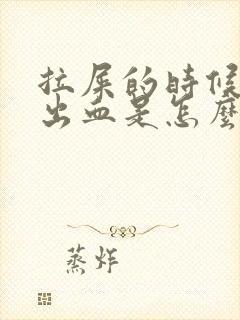 拉屎的時候
出血是怎麼
蒸炸